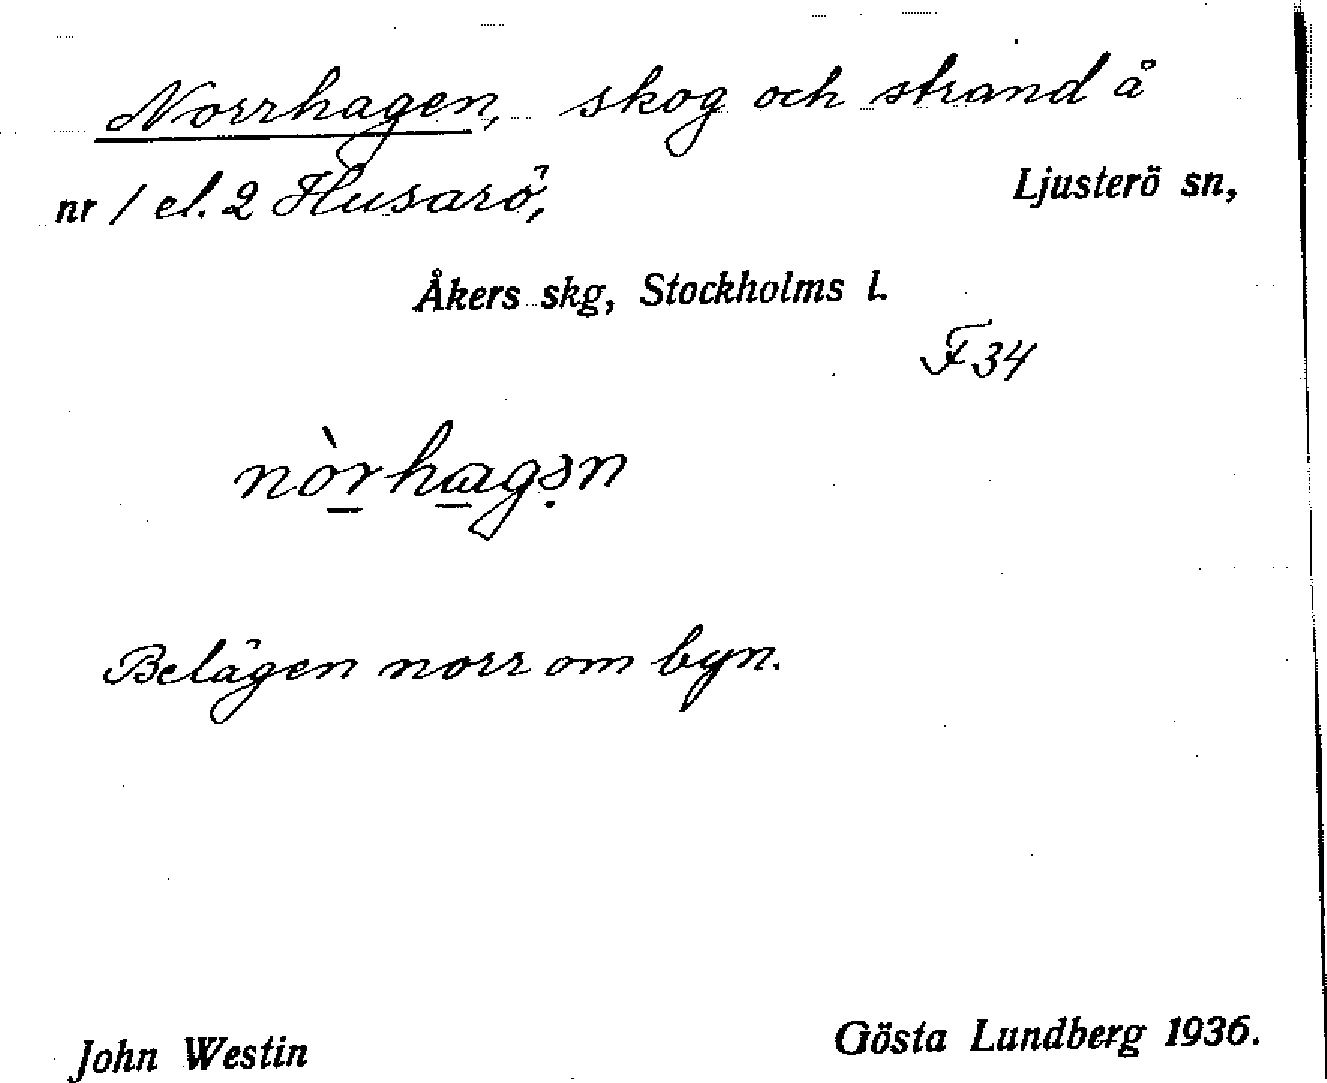 Norrhagen, skog och strand å
nr 1 el. 2 Husarö, Ljusterö sn,
Åkers skg, Stockholms l.
F34
nòrhagən
Belägen norr om byn.
John Westin Gösta Lundberg 1936.